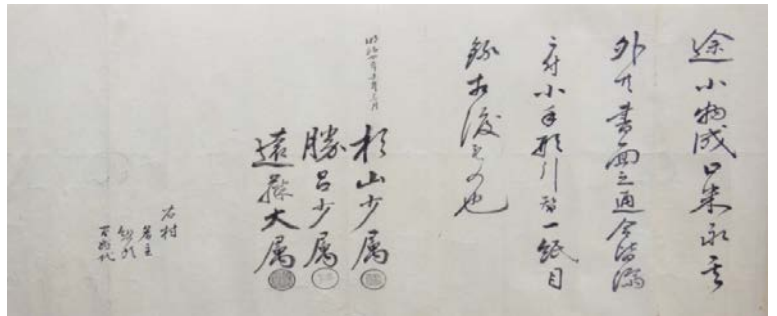 小物成口米永共
外共書面之通令皆済
ニ付小手形引替一紙目
録相渡もの也
明治
杉山少属
勝呂少属
遠藤大属
右村
名主
組頭
百姓代